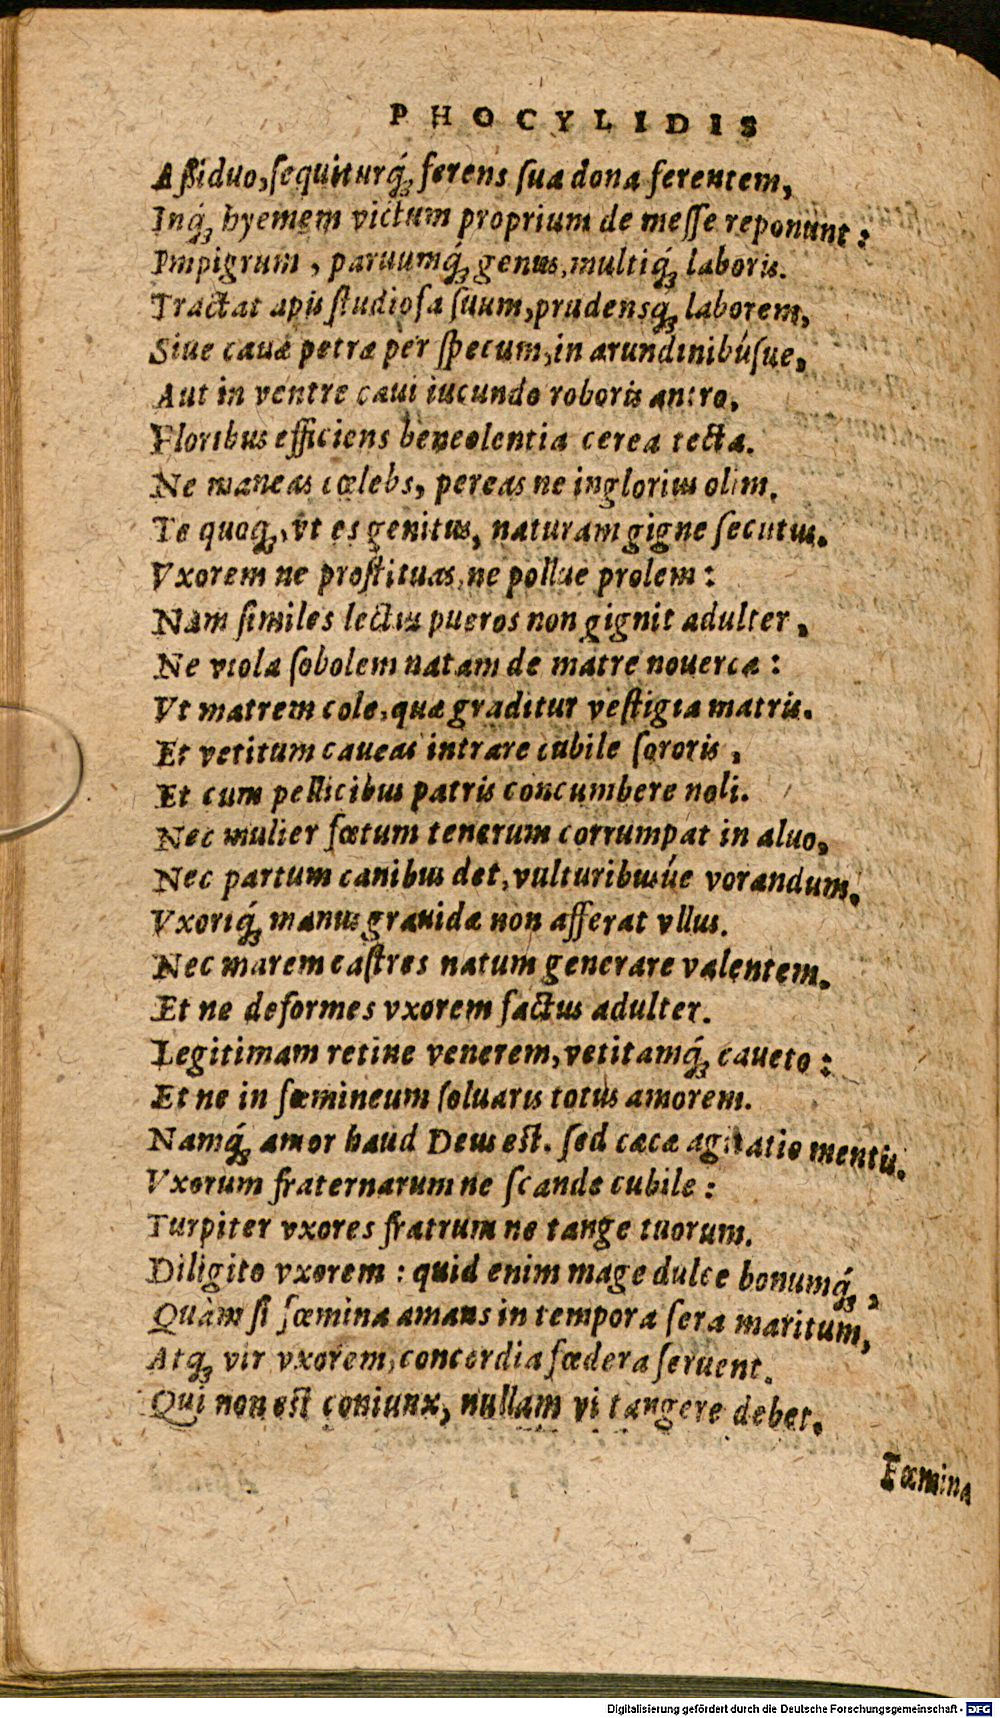 PHOCYLIDIS
Aſſiduo, ſequiturq́ꝫ ferens ſua dona ferentem,
Inq́ꝫ hyemem victum proprium de meſſe reponunt:
Impigrum, paruumq́ꝫ genus, multiq́ꝫ laboris.
Tractat apis ſtudioſa ſuum, prudensq́ꝫ laborem,
Siue cauæ petræ per ſpecum, in arundinibúſue,
Aut in ventre caui iucundo roboris antro,
Floribus efficiens beneolentia cerea tecta.
Ne maneas cœlebs, pereas ne inglorius olim.
Te quoqꝫ, vt es genitus, naturam gigne ſecutus.
Vxorem ne proſtituas, ne pollue prolem:
Nam ſimiles lectus pueros non gignit adulter,
Ne viola ſobolem natam de matre nouerca:
Vt matrem cole, quæ graditur veſtigia matris.
Et vetitum caueas intrare cubile ſororis,
Et cum pellicibus patris concumbere noli.
Nec mulier fœtum tenerum corrumpat in aluo,
Nec partum canibus det, vulturibusúe vorandum.
Vxoriq́ꝫ manus grauidæ non afferat vllus.
Nec marem caſtres natum generare valentem.
Et ne deformes vxorem factus adulter.
Legitimam retine venerem, vetitamq́ꝫ caueto:
Et ne in fœmineum ſoluaris totus amorem.
Namq́ꝫ amor haud Deus eſt. ſed cæca agitatio mentis.
Vxorum fraternarum ne ſcande cubile:
Turpiter vxores fratrum ne tange tuorum.
Diligito vxorem: quid enim mage dulce bonumq́ꝫ,
Quàm ſi fœmina amans in tempora ſera maritum,
Atqꝫ vir vxorem, concordia fœdera ſeruent.
Qui non eſt coniunx, nullam vi tangere debet.
Fœmina
Digitalisierung gefördert durch die Deutsche Forschungsgemeinschaft - DFG